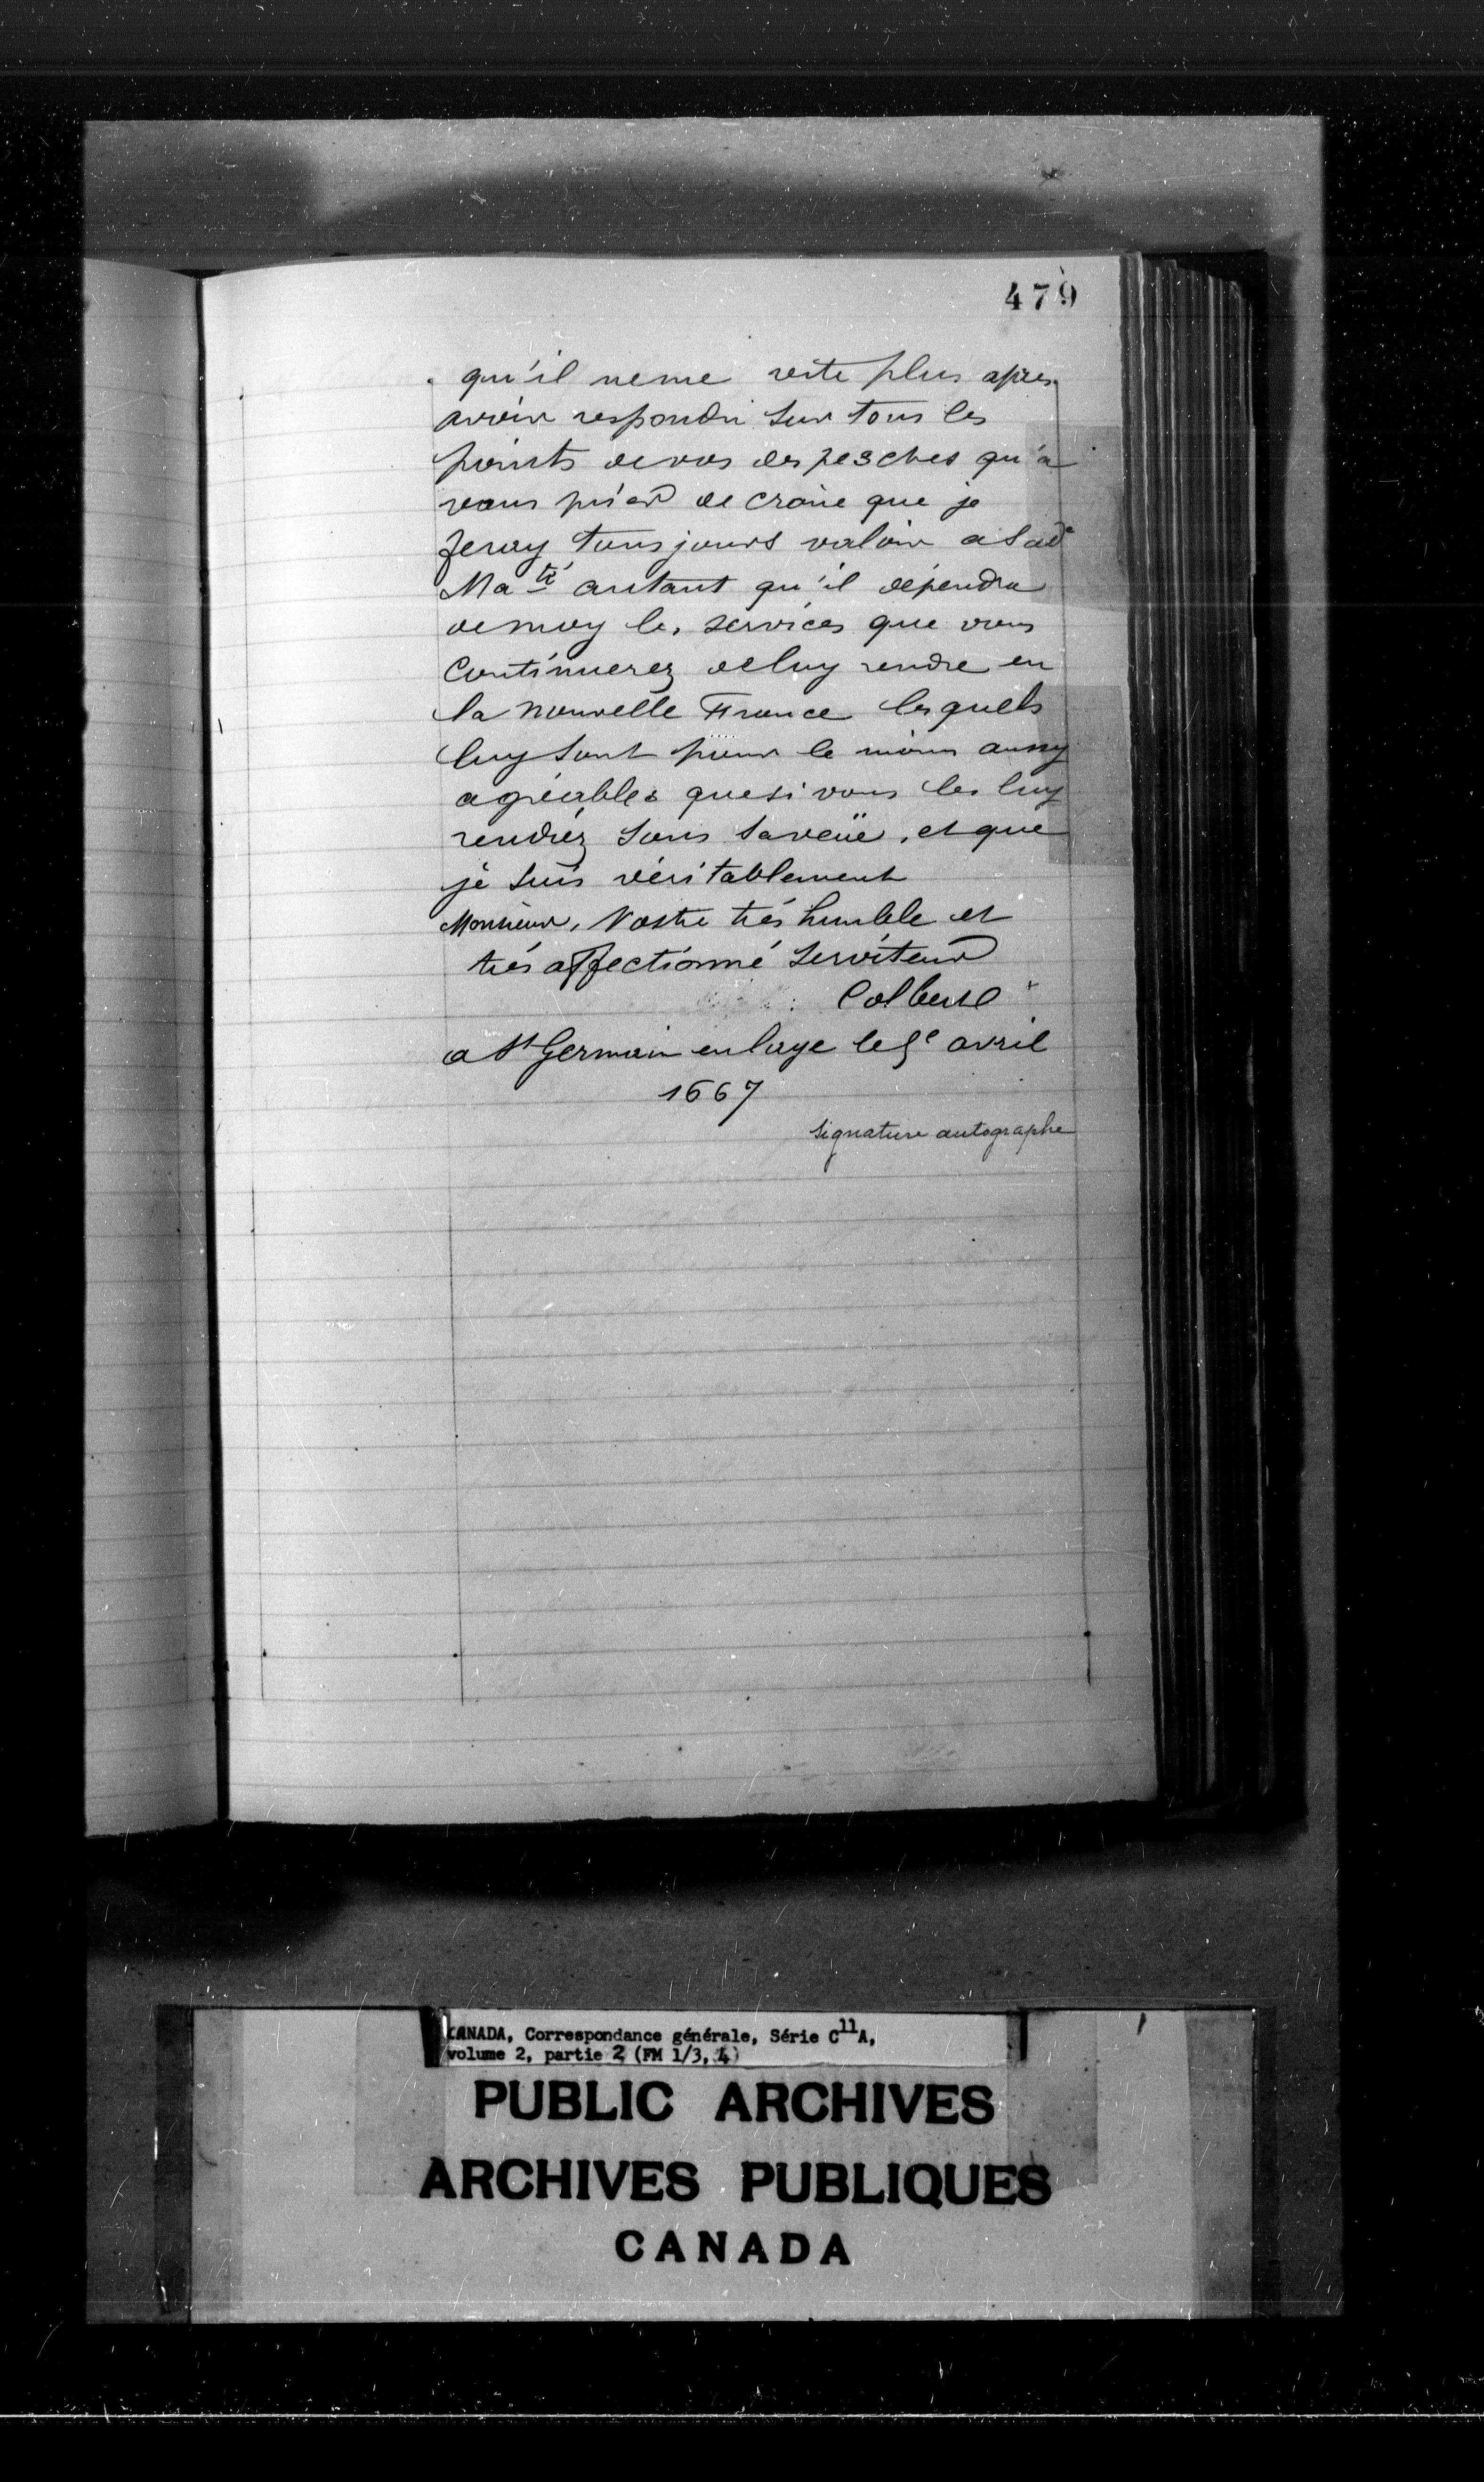 479
qu'il neme reste plus apres
avoir respondu sur tous les
points devos despesches qu'a
vous prier de croire que je
feray tousjours valoir a sad^e
Ma^té autant qu'il dépendra
demoy les services que vous
continuerez deluy rendre en
la nouvelle France lesquels
luy sont pour le moins aussy
agréables quesi vous les luy
rendiéz sous saveüe, et que
je suis véritablement
Monsieur, Vostre trés humble et
trés affectionné serviteur
Colbert
a St Germain enlaye le 5^e avril
1667
signature autographe
CANADA, Correspondance générale, Série C^11 A,
volume 2, partie 2 (FM 1/3, 4)
PUBLIC ARCHIVES
ARCHIVES PUBLIQUES
CANADA